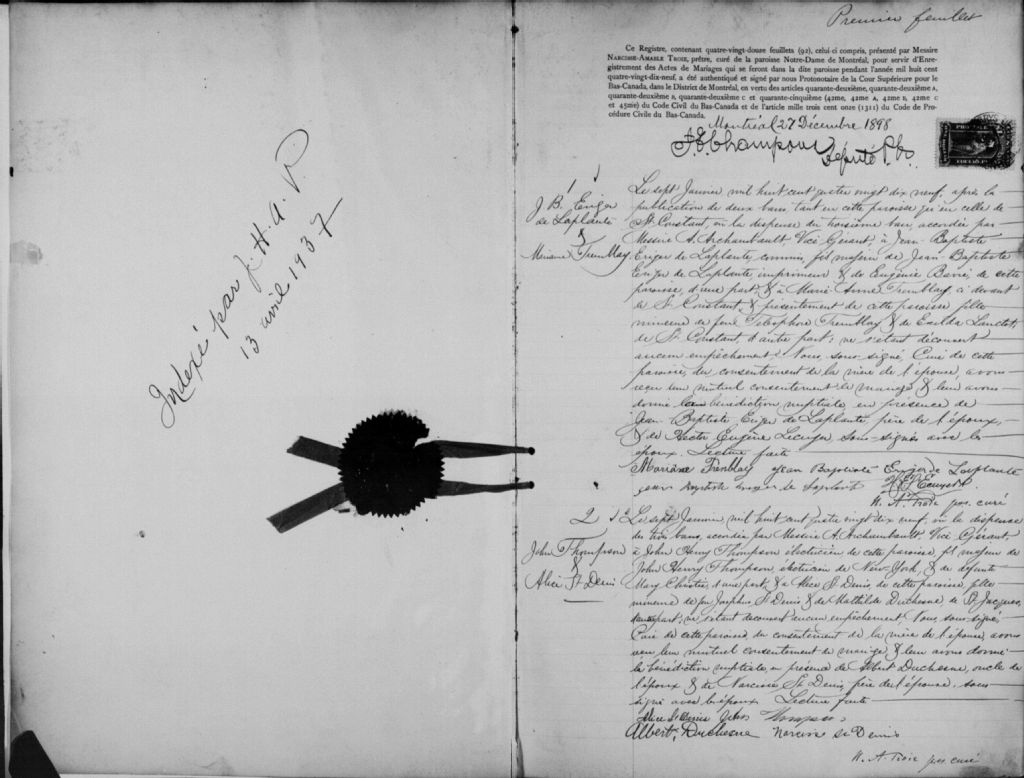 Indexé par J. H. A. P.
13 avril 1937
Premier feuillet
Ce Registre, contenant quatre-vingt-douze feuillets (92), celui ci compris, présenté par Messire
NARCISSE-AMABLE TROIE, prêtre, curé de la paroisse Notre-Dame de Montréal, pour servir d'Enre-
gistrement des Actes de Mariages qui se feront dans la dite paroisse pendant l'année mil huit cent
quatre-vingt-dix-neuf, a été authentiqué et signé par nous Protonotaire de la Cour Supérieure pour le
Bas-Canada, dans le District de Montréal, en vertu des articles quarante-deuxième, quarante-deuxième A,
quarante-deuxième B, quarante-deuxième C et quarante-cinquième (42me, 42me A, 42me B, 42me C
et 45me) du Code Civil du Bas-Canada et de l'article mille trois cent onze (1311) du Code de Pro-
cédure Civile du Bas-Canada.
Montréal 27 Décembre 1898
Député P.
1
J. B. Eriger
de Laplante
&
Tremblay
Le sept Janvier mil huit cent quatre vingt dix neuf, après la
publication de deux bans, tant en cette paroisse qu'en celle de
St Constant, vu la dispense du troisième ban, accordée par
Messire A. Archambault Vice Gérant, à Jean-Baptiste
Eriger de Laplante, commis, fils majeur de Jean Baptiste
Eriger de Laplante, imprimeur & de Eugénie de cette
paroisse, d'une part, & à Marie-Anne Tremblay, ci devant
de St Constant, & présentement de cette paroisse fille
mineure de feu Télesphore Tremblay & de Exilda Lanctot,
de St Constant, d'autre part; ne s'étant découvert
aucun empêchement: Nous, sous-signé, Curé de cette
paroisse, du consentement de la mère de l'épouse, avons
reçu leur mutuel consentement de mariage & leur avons
donné la bénédiction nuptiale en présence de
Jean Baptiste Eriger de Laplante, père de l'époux,
& de Hector Eugène Lecuyer, sous-signés avec les
époux. Lecture faite
Tremblay Jean Eriger de Laplante
H. E. Lecuyer
N. A. Troie ptr. curé
2
John Thompson
&
Alice St Denis
Le sept Janvier, mil huit cent quatre vingt dix neuf, vu la dispense
des trois bans, accordée par Messire A. Archambault Vice Gérant,
à John Henry Thompson électricien de cette paroisse, fils majeur de
John Henry Thompson, électricien de New-York, & de défunte
Mary Christie, d'une part, & à Alice St Denis, de cette paroisse, fille
mineure de feu Josephus St Denis & de Mathilde Duchesne, de St Jacques,
d'autre part; ne s'étant découvert aucun empêchement, Nous, sous-signé,
Curé de cette paroisse, du consentement de la mère de l'épouse, avons
reçu leur mutuel consentement de mariage & leur avons donné
la bénédiction nuptiale, en présence de Albert Duchesne, oncle de
l'époux & de Narcisse St Denis, frère de l'épouse, sous-
signés avec les époux. Lecture faite
Alice St Denis John Thompson
Albert Duchesne Narcisse St Denis
N. A. Troie ptr. curé